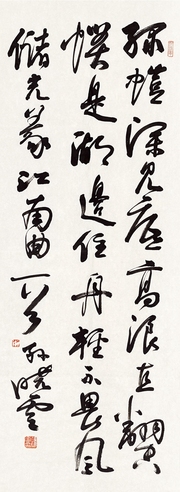 綠江深見底高浪直翻空
慣是湖邊住舟輕不畏風
儲光羲江南曲一首孫曉雲